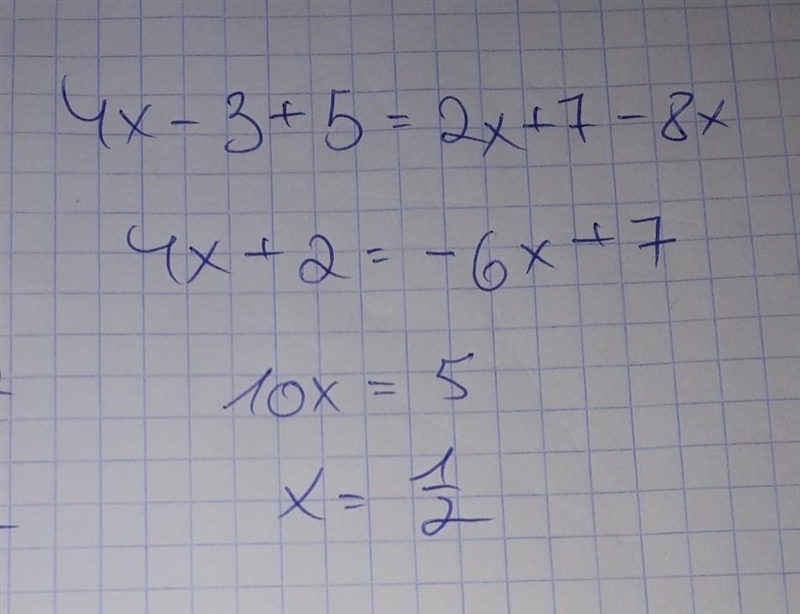 4x - 3 + 5 = 2x + 7 - 8x
4x + 2 = -6x + 7
10x = 5
x = 1/2